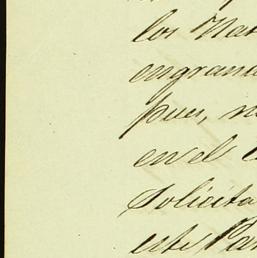 los Nat
engrand
pues, n
en el
Solicita
este Par